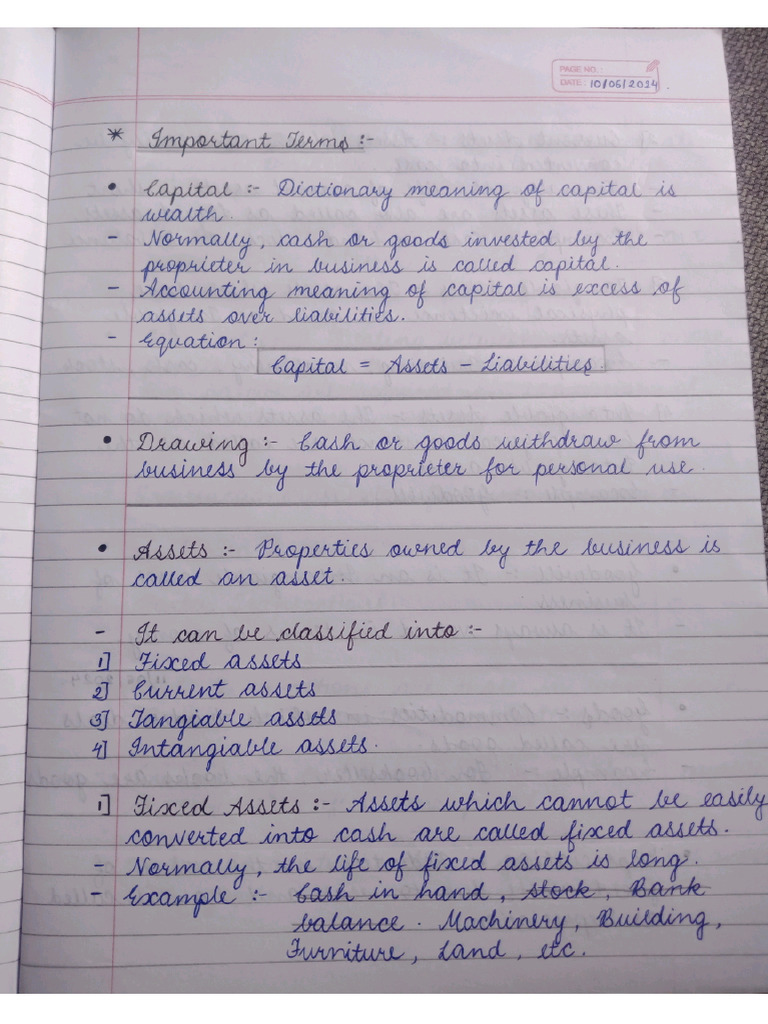 PAGE NO. :
DATE : 10/06/2024.
* Important Terms :-
• Capital :- Dictionary meaning of capital is
wealth.
- Normally, cash or goods invested by the
proprieter in business is called capital.
- Accounting meaning of capital is excess of
assets over liabilities.
- Equation :
Capital = Assets - Liabilities.
• Drawing :- Cash or goods withdraw from
business by the proprieter for personal use.
• Assets :- Properties owned by the business is
called an asset.
- It can be classified into :-
1] Fixed assets
2] Current assets
3] Tangiable assets
4] Intangiable assets.
1] Fixed Assets :- Assets which cannot be easily
converted into cash are called fixed assets.
- Normally, the life of fixed assets is long.
- Example :- Cash in hand, stock, Bank
balance. Machinery, Building,
Furniture, Land, etc.